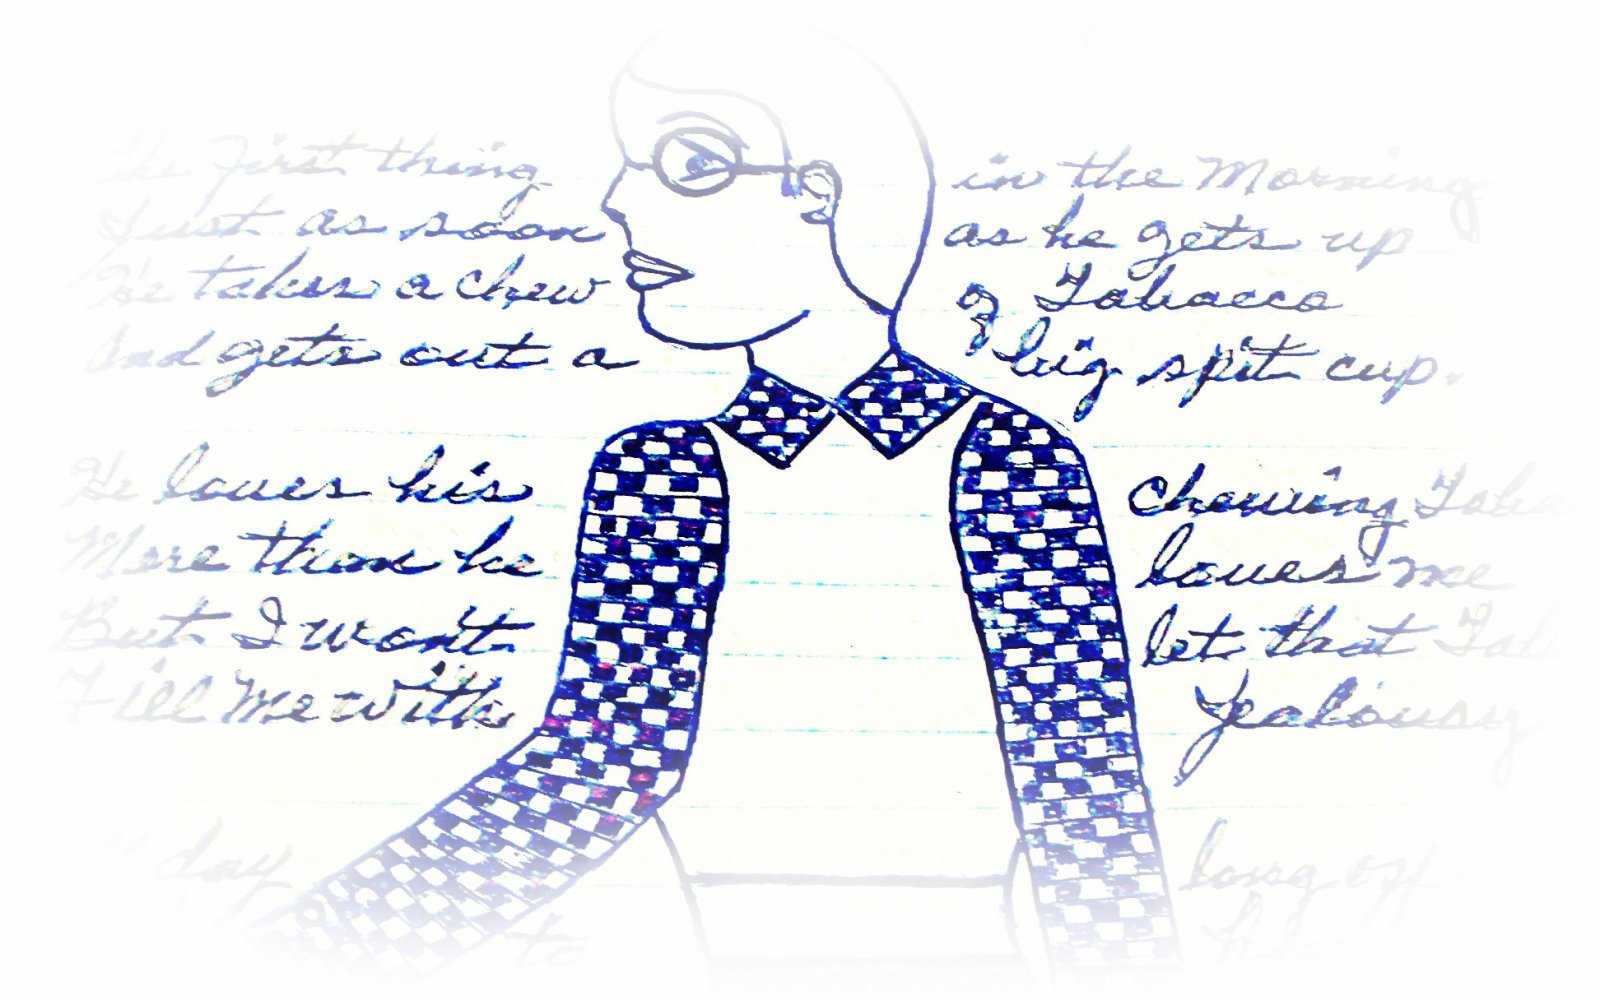 The First thing in the Morning
Just as soon as he gets up
He takes a chew of Tobacco
And gets out a big spit cup.
He loves his Chewing
More than he loves me
But I wont let that
Fill Me with Jealousy
day long off
to